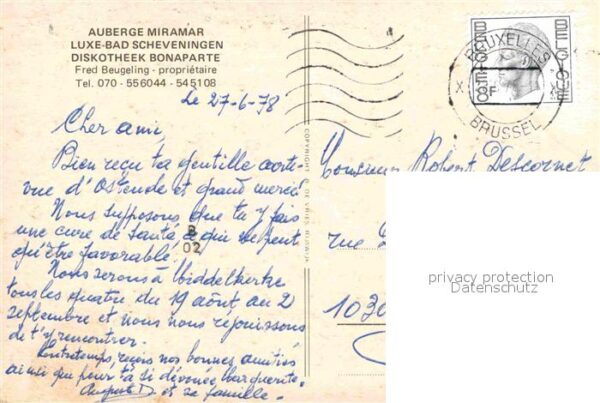 AUBERGE MIRAMAR
LUXE-BAD SCHEVENINGEN
DISKOTHEEK BONAPARTE
Fred Beugeling - propriétaire
Tel. 070 - 556044 - 545108
Le 27-6-78
Cher ami,
Bien reçu ta gentille carte-
vue d'Ostende et grand merci
Nous supposons que tu y fais
une cure de santé, qui ne peut
qu'être favorable.
Nous serons à Middelkerke
tous les quatre du 19 août au 2
septembre et nous nous réjouissons
de t'y rencontrer.
Entretemps, reçois nos bonnes amitiés
ainsi que pour ta si dévouée Marguerite.
et sa famille.
B
02
COPYRIGHT
BELGIQUE
BELGIE
5F
BRUXELLES
X X
BRUSSEL
Monsieur Robert Descornet
rue
1030
privacy protection
Datenschutz